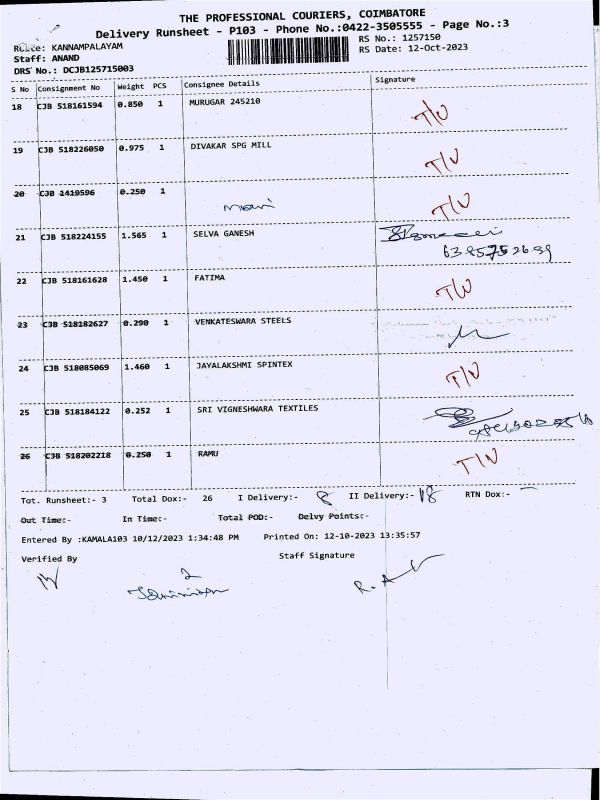 THE PROFESSIONAL COURIERS, COIMBATORE
Delivery Runsheet - P103 - Phone No.:0422-3505555 - Page No.:3
KANNAMPALAYAM RS No.: 1257150
Staff: ANAND RS Date: 12-Oct-2023
DRS No.: DCJB125715003
S No Consignment No Weight PCS Consignee Details Signature
18 CJB 518161594 0.850 1 MURUGAR 245210 T/N
19 CJB 518226050 0.975 1 DIVAKAR SPG MILL T/N
20 CJB 1419596 0.250 1 T/N
21 CJB 518224155 1.565 1 SELVA GANESH
22 CJB 518161628 1.450 1 FATIMA T/N
23 CJB 518182627 0.290 1 VENKATESWARA STEELS
24 CJB 518085069 1.460 1 JAYALAKSHMI SPINTEX T/N
25 CJB 518184122 0.252 1 SRI VIGNESHWARA TEXTILES
26 CJB 518202218 0.250 1 RAMU T/N
Tot. Runsheet:- 3 Total Dox:- 26 I Delivery:- 8 II Delivery:- 18 RTN Dox:- -
Out Time:- In Time:- Total POD:- Delvy Points:-
Entered By :KAMALA103 10/12/2023 1:34:48 PM Printed On: 12-10-2023 13:35:57
Verified By Staff Signature